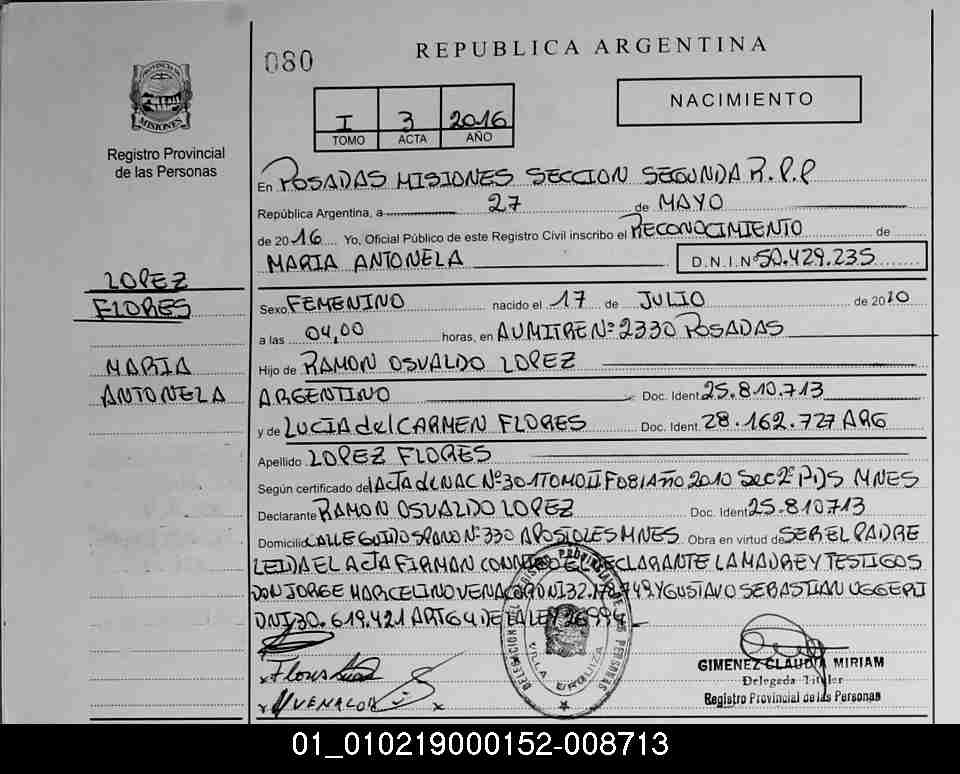 080
REPUBLICA ARGENTINA
NACIMIENTO
I 3 2016
TOMO ACTA AÑO
PROVINCIA DE
MISIONES
Registro Provincial
de las Personas
LOPEZ
FLORES
MARIA
ANTONELA
En POSADAS MISIONES SECCION SEGUNDA R.P.P
República Argentina, a 27 de MAYO
de 2016 Yo, Oficial Público de este Registro Civil inscribo el RECONOCIMIENTO de
MARIA ANTONELA D.N.I. Nº 50.429.235
Sexo FEMENINO nacido el 17 de JULIO de 2010
a las 04,00 horas, en AUMITRE Nº 2330 POSADAS
Hijo de RAMON OSVALDO LOPEZ
ARGENTINO Doc. Ident. 25.810.713
y de LUCIA del CARMEN FLORES Doc. Ident. 28.162.727 ARG
Apellido LOPEZ FLORES
Según certificado de ACTA de NAC Nº 301 TOMO II F081 AÑO 2010 Sec 2º PDS MNES
Declarante RAMON OSVALDO LOPEZ Doc. Ident 25.810713
Domicilio CALLE GUIDO SPANO Nº 330 APOSTOLES MNES. Obra en virtud de SER EL PADRE
LEIDA EL ACTA FIRMAN CONMIGO EL DECLARANTE LA MADRE Y TESTIGOS
DON JORGE MARCELINO DNI 32. Y GUSTAVO SEBASTIAN
DNI 30.619.421 ART 64 DE LA LEY 26994
DELEGACION DEL REGISTRO PROVINCIAL DE LAS PERSONAS
VILLA URQUIZA
Flores
x
GIMENEZ CLAUDIA MIRIAM
Delegada Titular
Registro Provincial de las Personas
01_010219000152-008713